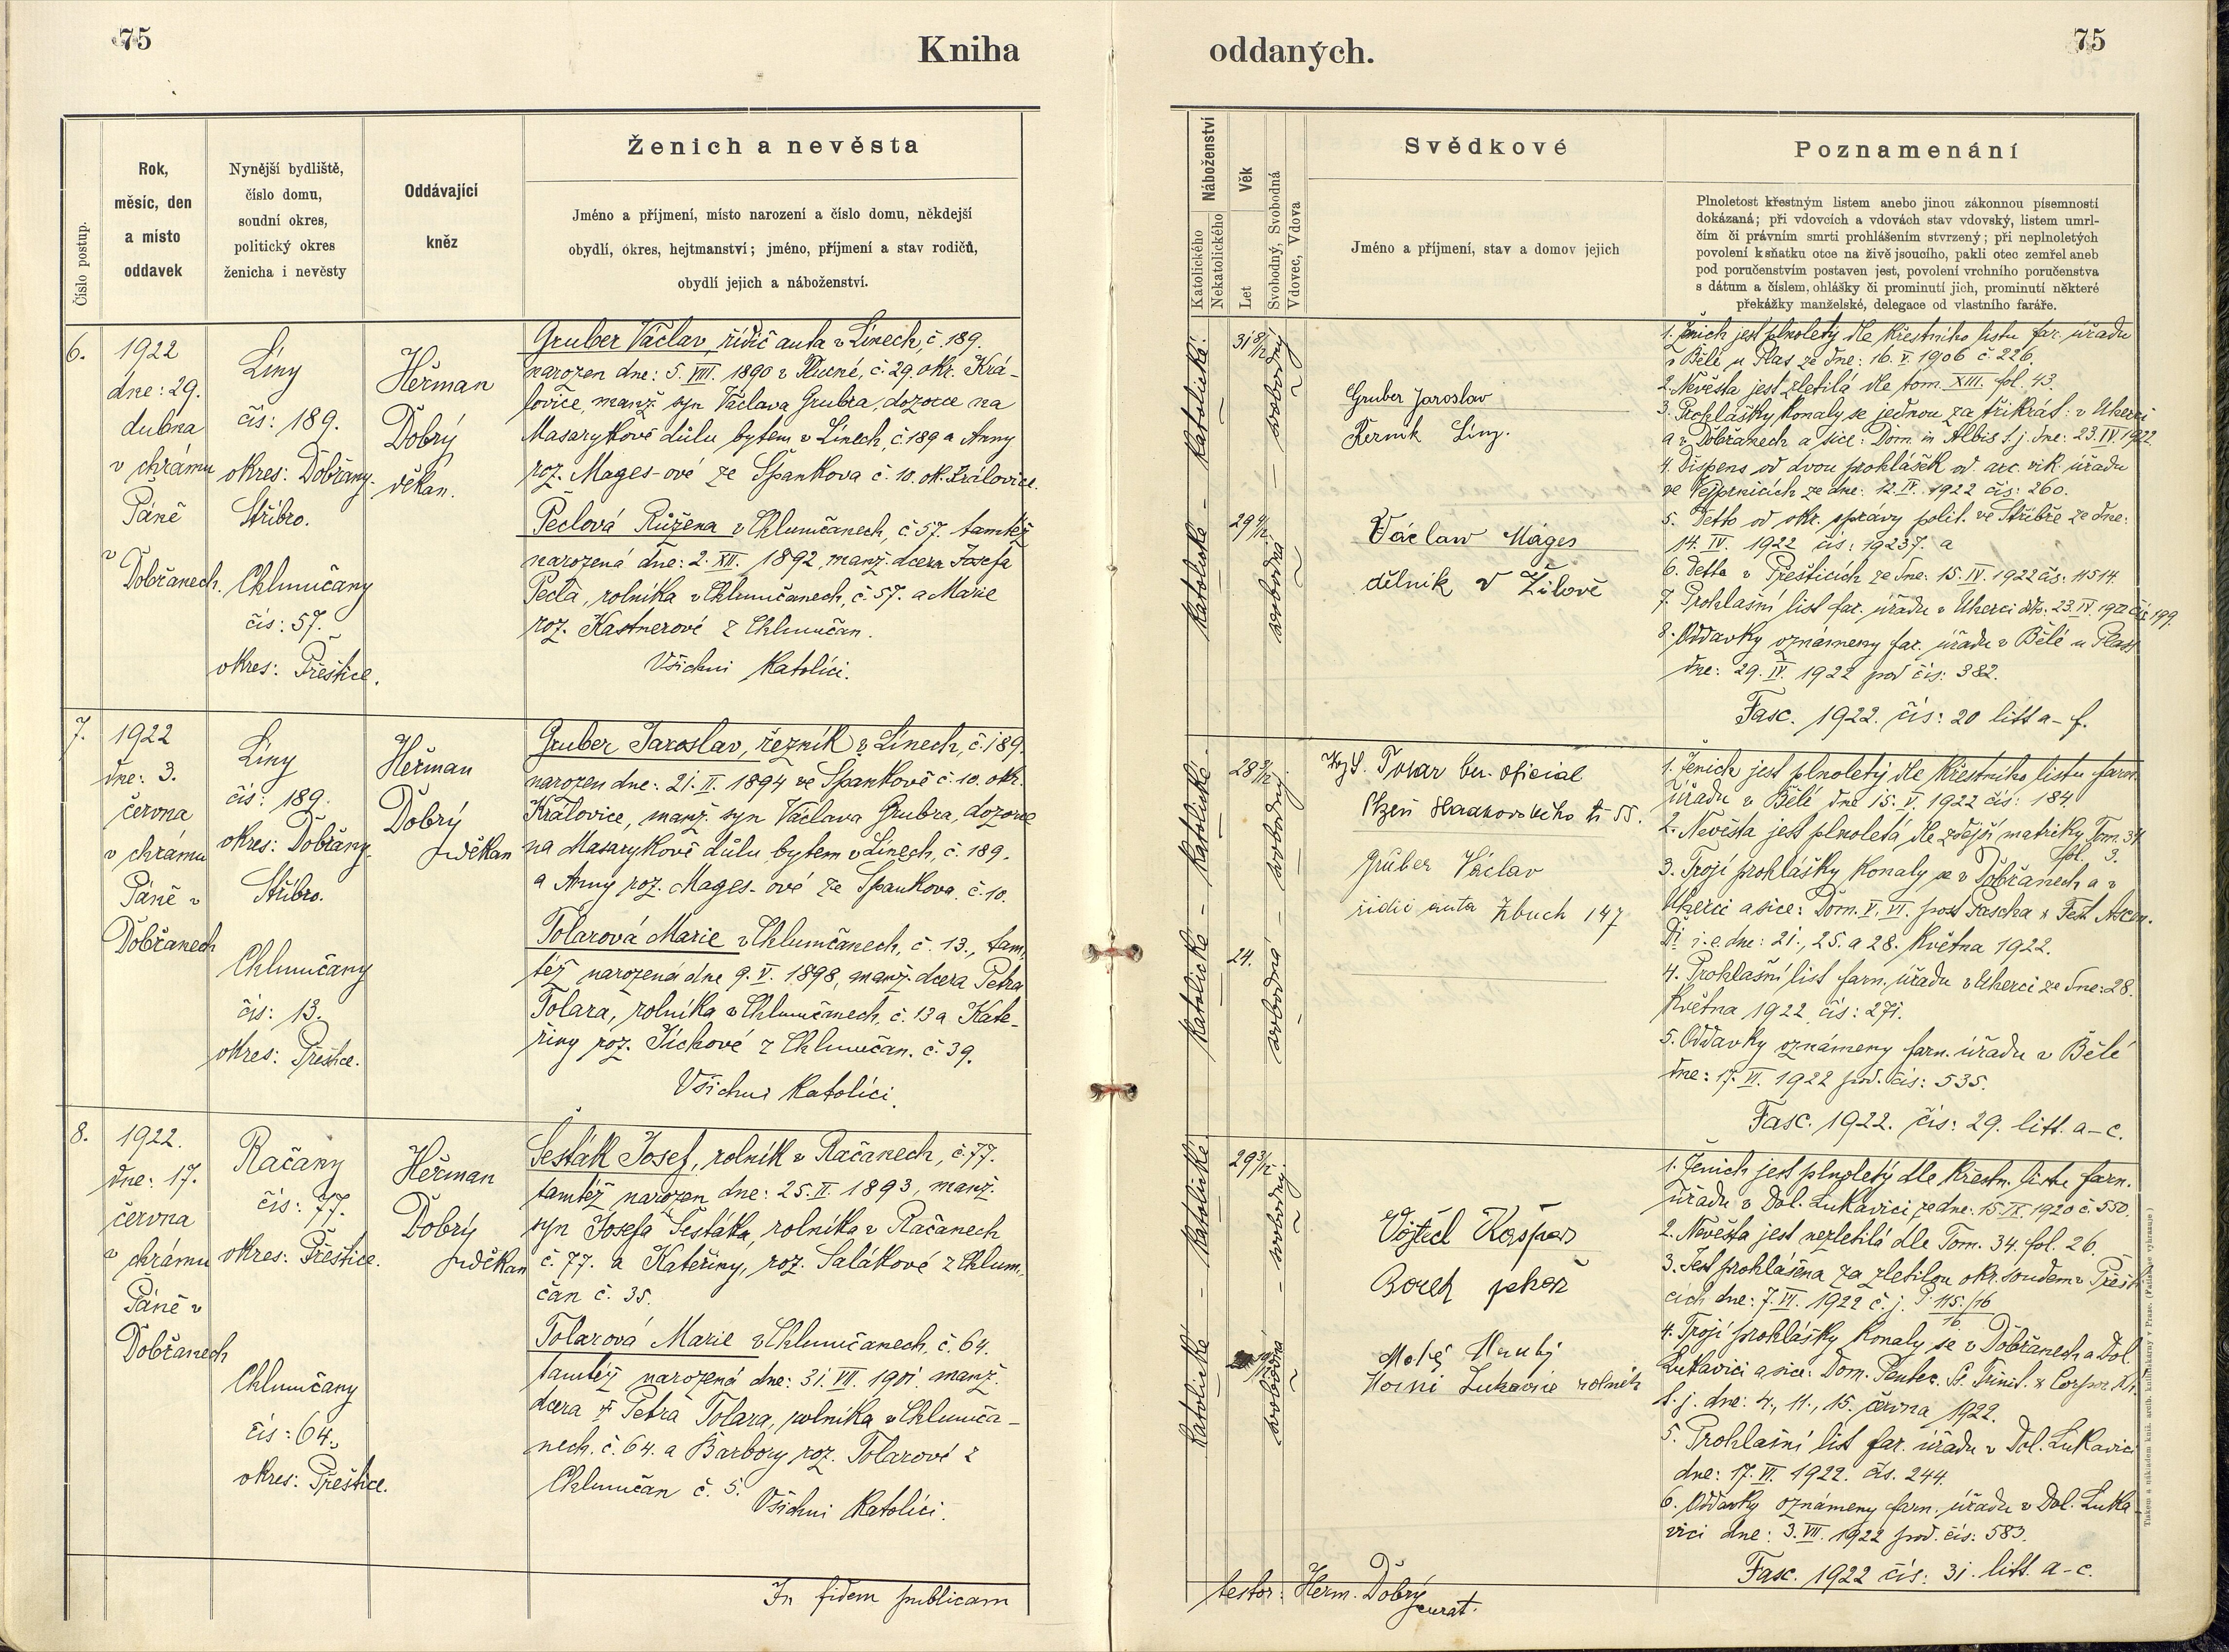 75
Kniha
Číslo postup.
Rok,
měsíc, den
a místo
oddavek
Nynější bydliště,
číslo domu,
soudní okres,
politický okres
ženicha i nevěsty
Oddávající
kněz
Ženich a nevěsta
Jméno a příjmení, místo narození a číslo domu, někdejší
obydlí, okres, hejtmanství; jméno, příjmení a stav rodičů,
obydlí jejich a náboženství.
6.
1922
dne: 29.
dubna
v chrámu
Páně
v
Dobřanech.
Líny
čís: 189.
okres: Dobřany.
Stříbro.
Chlumčany
čís: 57.
okres: Přeštice.
Heřman
Dobrý
děkan.
Gruber Václav, řidič auta v Línech, č. 189.
narozen dne: 5. VIII. 1890 v Hlucné, č. 29. okr. Krá-
lovice, manž. syn Václava Grubra, dozorce na
Masarykově důlu bytem v Línech, č. 189 a Anny
roz. Mages-ové ze Špankova č. 10. ok. Královice.
Peclová Růžena v Chlumčanech, č. 57. tamtéž
narozená dne: 2. XII. 1892, manž. dcera Josefa
Pecla, rolníka v Chlumčanech, č. 57. a Marie
roz. Kastnerové z Chlumčan.
Všichni Katolíci.
7.
1922
dne: 3.
června
v chrámu
Páně v
Dobřanech
Líny
čís: 189.
okres: Dobřany.
Stříbro.
Chlumčany
čís: 13.
okres: Přeštice.
Heřman
Dobrý
děkan
Gruber Jaroslav, řezník v Línech, č. 189.
narozen dne: 21. II. 1894 ve Špankově č. 10. okr.
Královice, manž. syn Václava Grubra, dozorce
na Masarykově důlu, bytem v Línech, č. 189.
a Anny roz. Mages-ové ze Špankova. č. 10.
Tolarová Marie v Chlumčanech, č. 13., tam-
též narozená dne 9. V. 1898, manž. dcera Petra
Tolara, rolníka v Chlumčanech, č. 13 a Kate-
řiny roz. Jíchové z Chlumčan. č. 39.
Všichni Katolíci.
8.
1922.
dne: 17.
června
v chrámu
Páně v
Dobřanech
Račany
čís: 77.
okres: Přeštice.
Chlumčany
čís: 64.
okres: Přeštice.
Heřman
Dobrý
děkan
Šesták Josef, rolník v Račanech, č. 77.
tamtéž narozen dne: 25. II. 1893, manž.
syn Josefa Šestáka, rolníka v Račanech
č. 77. a Kateřiny, roz. Salákové z Chlum-
čan č. 35.
Tolarová Marie v Chlumčanech, č. 64.
tamtéž narozená dne: 31. VII. 1901. manž.
dcera Petra Tolara, rolníka v Chlumča-
nech. č. 64. a Barbory roz. Tolarové z
Chlumčan č. 5.
Všichni Katolíci.
In fidem publicam
oddaných.
75
Náboženství
Katolického
Nekatolického
Věk
Let
Svobodný, Svobodná
Vdovec, Vdova
Svědkové
Jméno a příjmení, stav a domov jejich
Poznamenání
Plnoletost křestným listem anebo jinou zákonnou písemností
dokázaná; při vdovcích a vdovách stav vdovský, listem umrl-
čím či právním smrti prohlášením stvrzený; při neplnoletých
povolení k sňatku otce na živě jsoucího, pakli otec zemřel aneb
pod poručenstvím postaven jest, povolení vrchního poručenstva
s dátum a číslem, ohlášky či prominutí jich, prominutí některé
překážky manželské, delegace od vlastního faráře.
Katolické.
31 8/12
svobodný
Katolické
29 4/12
svobodná
Gruber Jaroslav
Řezník Líny.
Václav Mages
dělník v Žilově
1. Ženich jest plnoletý dle křestního listu far. úřadu
v Bělé u Plas ze dne: 16. V. 1906 č. 226.
2. Nevěsta jest zletilá dle tom. XIII. fol. 43.
3. Prohlášky konaly se jednou za třikrát: v Uherci
a v Dobřanech a sice: Dom. in Albis t. j. dne: 23. IV. 1922
4. Dispens od dvou prohlášek od. arc. vik. úřadu
ve Vejprnicích ze dne: 12. IV. 1922 čís: 260.
5. Detto od okr. správy polit. ve Stříbře ze dne:
14. IV. 1922 čís: 19237. a
6. Detto v Přešticích ze dne: 15. IV. 1922 čís: 11514.
7. Prohlašní list far. úřadu v Uherci dto. 23. IV. 1922 čís 199.
8. Oddavky oznámeny far. úřadu v Bělé u Plas
dne: 29. IV. 1922 pod čís: 382.
Fasc. 1922. čís: 20 litt a-f.
Katolické
28 3/12
svobodný
Katolické
24.
svobodná
Tolar ber. oficial
Plzeň
Gruber Václav
řidič auta Zbuch 147
1. Ženich jest plnoletý dle křestního listu farn.
úřadu v Bělé dne 15. V. 1922 čís: 184.
2. Nevěsta jest plnoletá dle zdejší matriky Tom. 34
fol. 3.
3. Trojí prohlášky konaly se v Dobřanech a v
Uherci a sice: Dom. V., VI. post Pascha & Fest. Ascen.
Di i. e. dne: 21., 25. a 28. května 1922.
4. Prohlašní list farn. úřadu v Uherci ze dne: 28.
května 1922 čís: 271.
5. Oddavky oznámeny farn. úřadu v Bělé
dne: 17. VI. 1922 pod. čís: 535.
Fasc. 1922. čís: 29. litt. a-c.
Katolické
29 3/12
svobodný
Katolické
svobodná
Vojtěch Kašpar
Horní Lukavice rolník
1. Ženich jest plnoletý dle křestn. listu farn.
úřadu v Dol. Lukavici ze dne: 15. IX. 1920 č. 550.
2. Nevěsta jest nezletilá dle Tom. 34. fol. 26.
3. Jest prohlášena za zletilou okr. soudem v Přešti-
cích dne: 7. VI. 1922 č. j. P 115/16
16
4. Trojí prohlášky konaly se v Dobřanech a Dol.
Lukavici a sice: Dom. Pentec. Ss. Trinit. & Corpor. Xti.
t. j. dne: 4., 11., 15. června 1922.
5. Prohlašní list far. úřadu v Dol. Lukavici
dne: 17. VI. 1922. čís. 244.
6. Oddavky oznámeny farn. úřadu v Dol. Luka-
vici dne: 3. VII. 1922 pod. čís: 583.
Fasc. 1922 čís: 31. litt. a-c.
testor: Herm. Dobrý
curat.